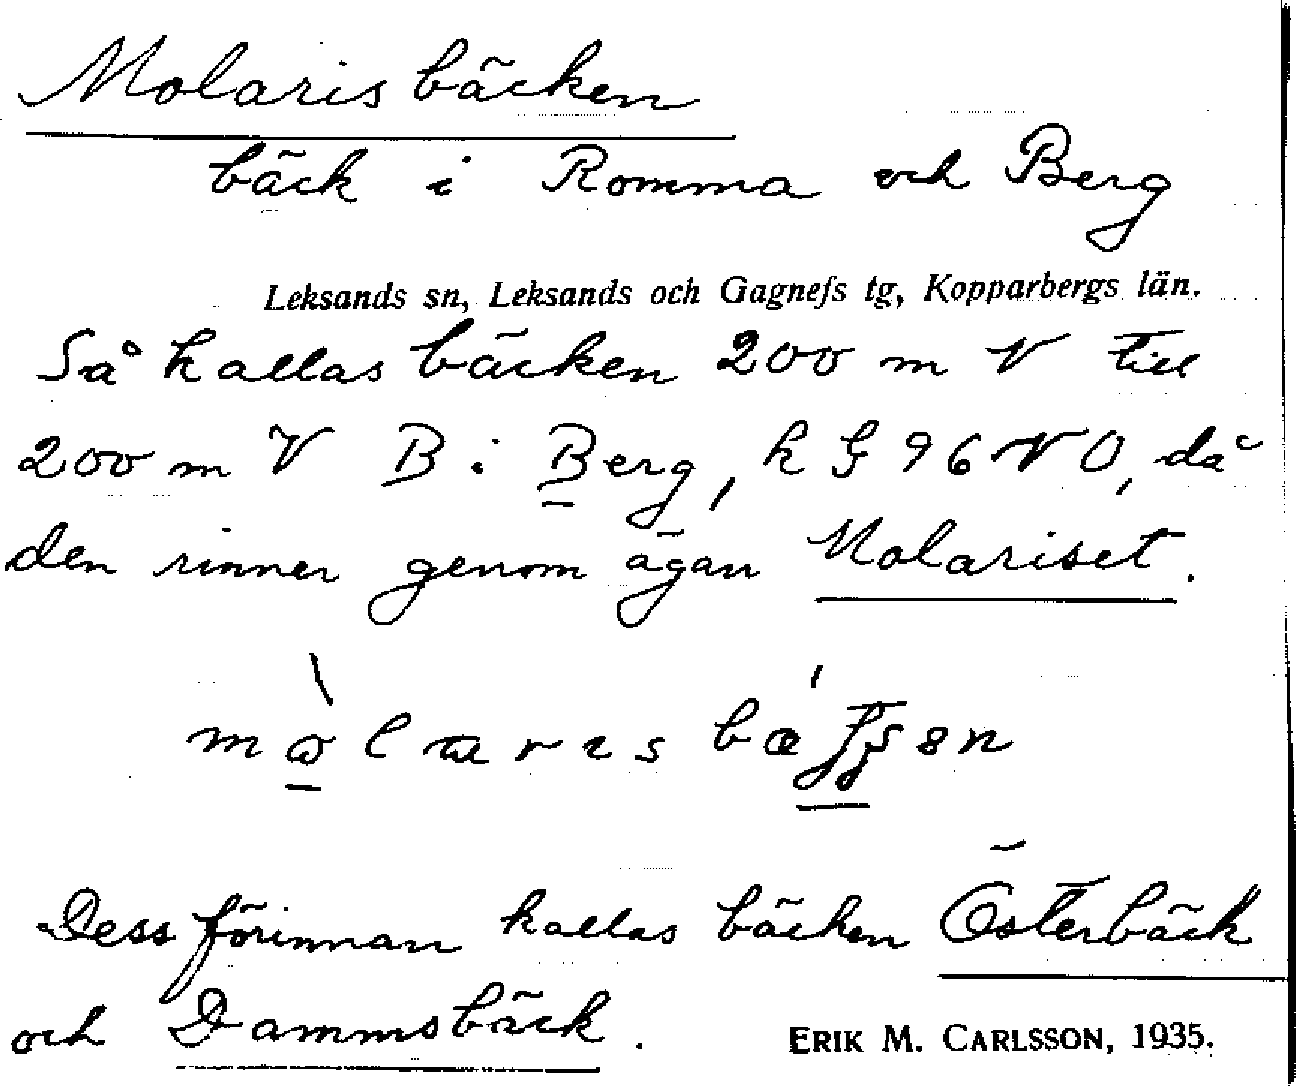 Molarisbäcken
bäck i Romma och Berg
Leksands sn, Leksands och Gagnefs tg, Kopparbergs län.
Så kallas bäcken 200 m V till
200 m V B i Berg, k G 96 NO, då
den rinner genom ägan Molariset.
mòlaris bǽʃʃsən
Dessförinnan kallas bäcken Österbäck
och Dammsbäck.
ERIK M. CARLSSON, 1935.